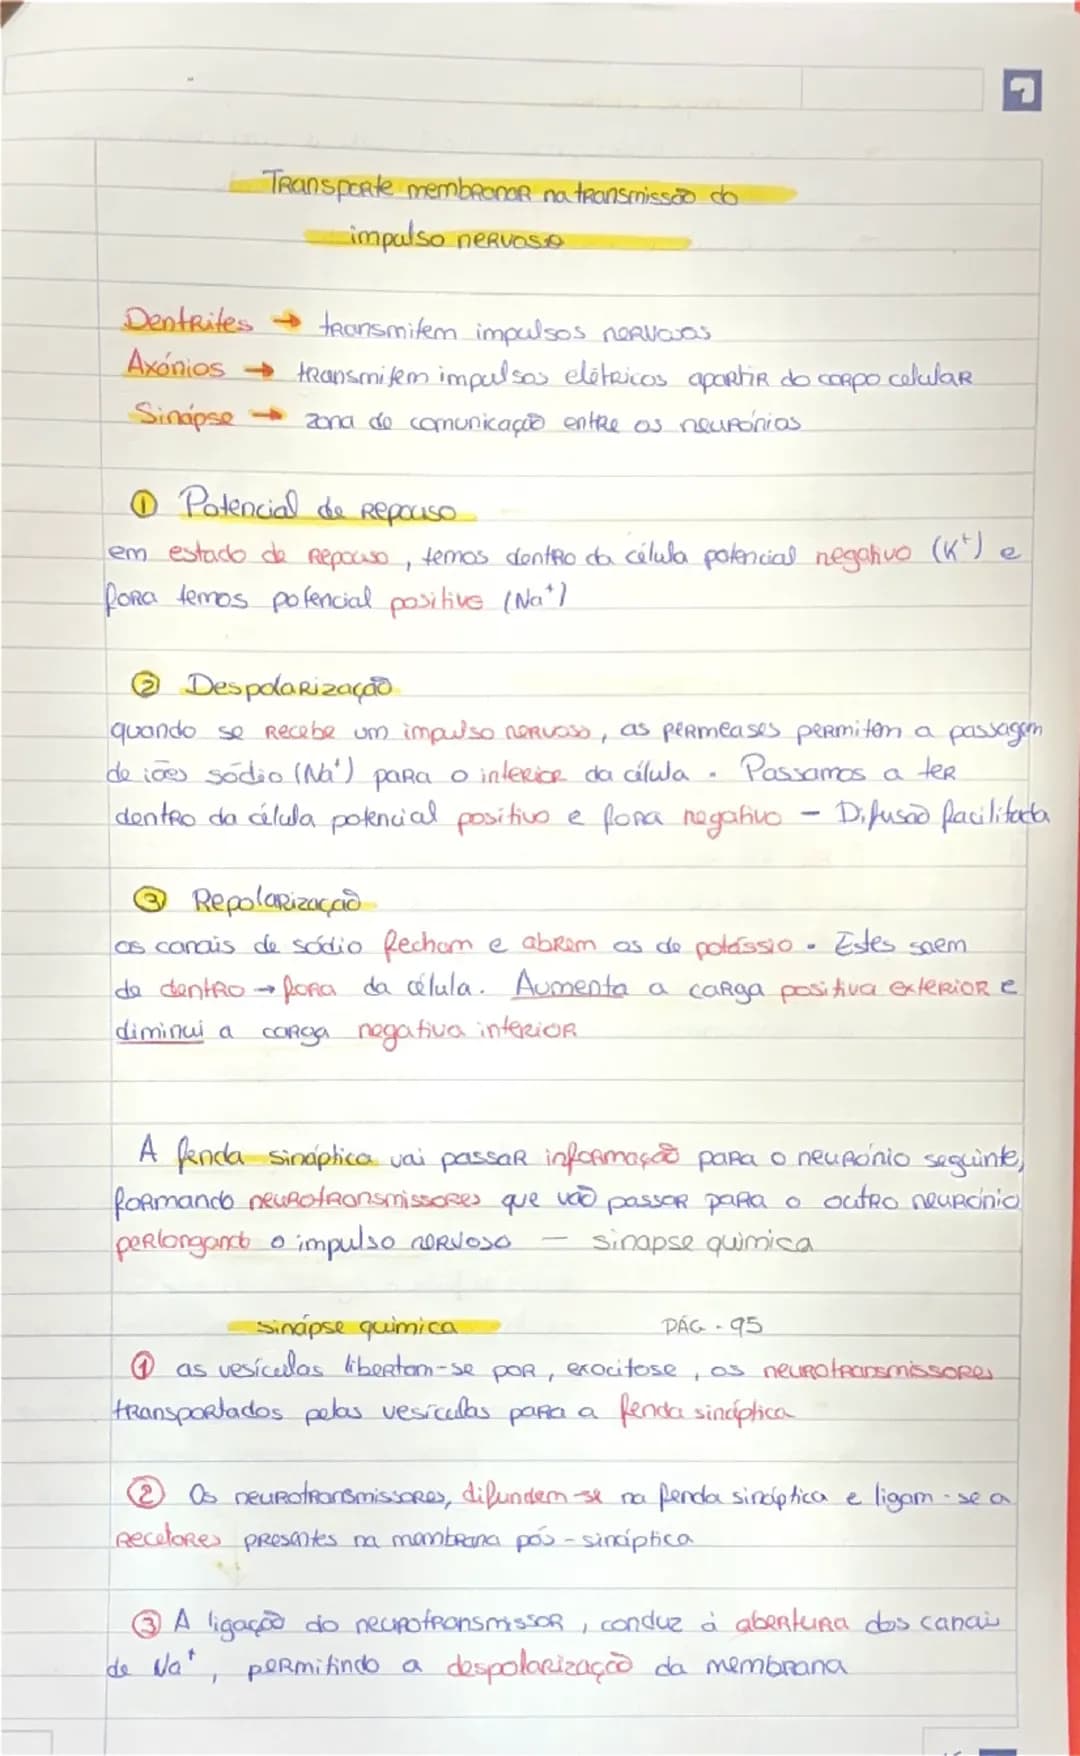 Transporte membranar na transmissão do
impulso nervoso
Dentrites → transmitem impulsos nervosos
Axónios → transmitem impulsos elétricos apartir do corpo celular
Sinápse → zona de comunicação entre os neurónios
① Potencial de Repouso
em estado de Repouso, temos dentro da célula potencial negativo (K⁺) e
fora temos potencial positivo (Na⁺)
② Despolarização
quando se recebe um impulso nervoso, as permeases permitem a passagem
de iões sódio (Na⁺) para o interior da célula. Passamos a ter
dentro da célula potencial positivo e fora negativo - Difusão facilitada
③ Repolarização
os canais de sódio fecham e abrem os de potássio. Estes saem
de dentro → fora da célula. Aumenta a carga positiva exterior e
diminui a carga negativa interior
A fenda sináptica vai passar informação para o neurónio seguinte,
formando neurotransmissores que vão passar para o outro neurónio
perlongando o impulso nervoso - sinapse química
sinápse química PÁG - 95
① as vesículas libertam-se por, exocitose, os neurotransmissores
transportados pelas vesículas para a fenda sináptica
② Os neurotransmissores, difundem-se na fenda sináptica e ligam-se a
recetores presentes na membrana pós-sináptica
③ A ligação do neurotransmissor, conduz à abertura dos canais
de Na⁺, permitindo a despolarização da membrana